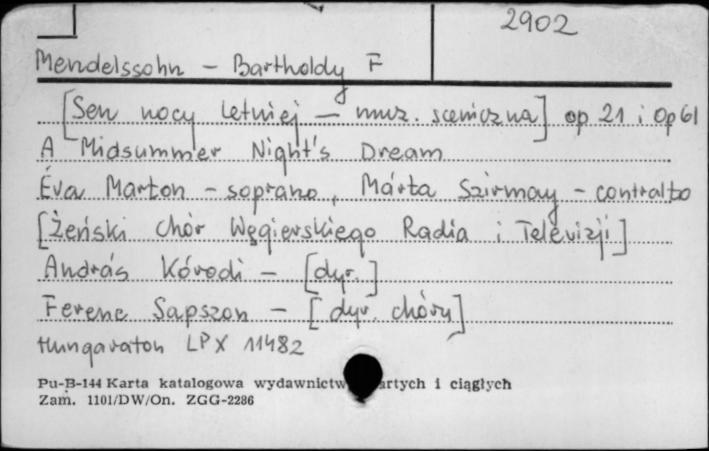 2902
Mendelssohn - Bartholdy F
[Sen nocy letniej - muz. sceniczna] op 21 i op 61
A Midsummer Night's Dream
Éva Marton - soprano, Márta Szirmay - contralto
[Żeński chór Węgierskiego Radia i Telewizji]
András Kórodi - [dyr.]
Ferenc Sapszon - [dyr. chóru]
Hungaraton LPX 11482
Pu-B-144 Karta katalogowa wydawnictw artych i ciągłych
Zam. 1101/DW/On. ZGG-2286